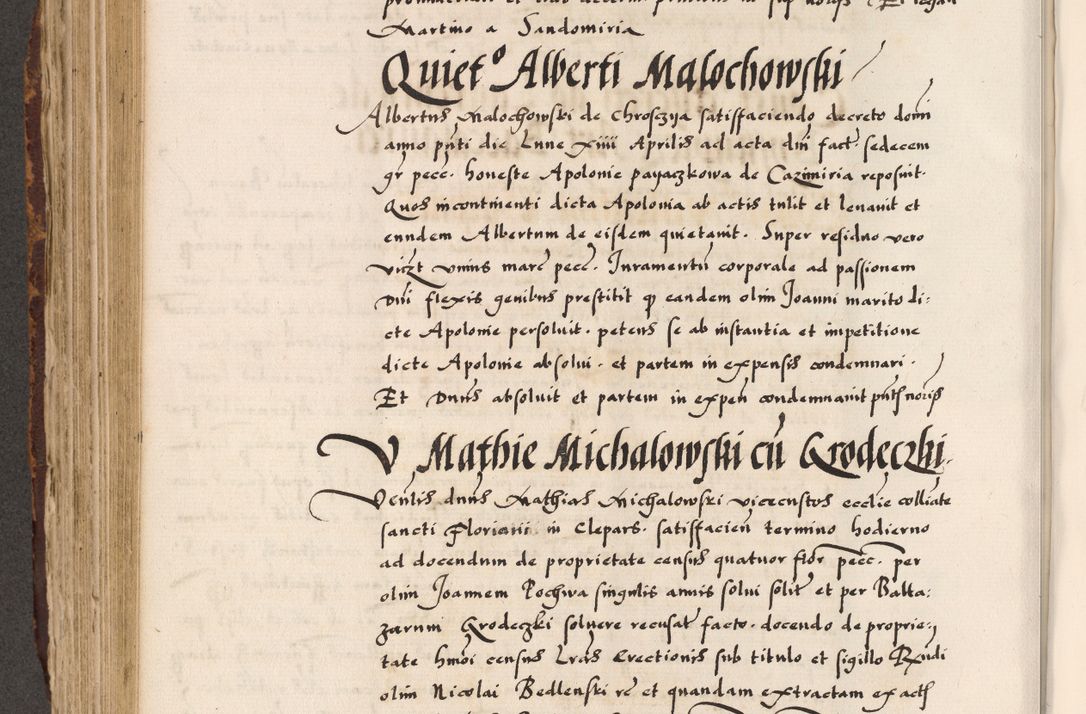 Martino a Sandomiria
Quiet° Alberti Malochowski
Albertus Malochowski de Chrosczya satisfaciendo decreto domi
anno pnti die Lune xiiii Aprilis ad acta dni fact sedecem
gr pecc. honeste Apolonie payaczkowa de Cazimiria reposuit.
Quos incontinenti dicta Apolonia ab actis tulit et levavit et
eundem Albertum de eisdem quietavit. Super residuo vero
viczt unius marc pecc. Juramentu corporale ad passionem
Dni flexis genibus prestitit q eandem olim Joanni marito di:
cte Apolonie persoluit. petens se ab instantia et impetitione
dicte Apolonie absolui. et partem in expensis condemnari.
Et Dnus absoluit et partem in expen condemnavit pntis noris
V Mathie Michalowski cu Grodeczki.
Venlis dnus Mathias Michalowski vicecustos ecclie colliate
sancti Floriani in Clepars. satisfacien termino hodierno
ad docendum de proprietate census quatuor flor pecc. per
olim Joannem Rochwa singulis annis solui solit et per Balta:
zarum Grodeczki soluere recusat facto. docendo de proprie:
tate hmoi census Lras Erectionis sub titulo et sigillo Rndi
olim Nicolai Bedlenski rc et quandam extractam ex actis